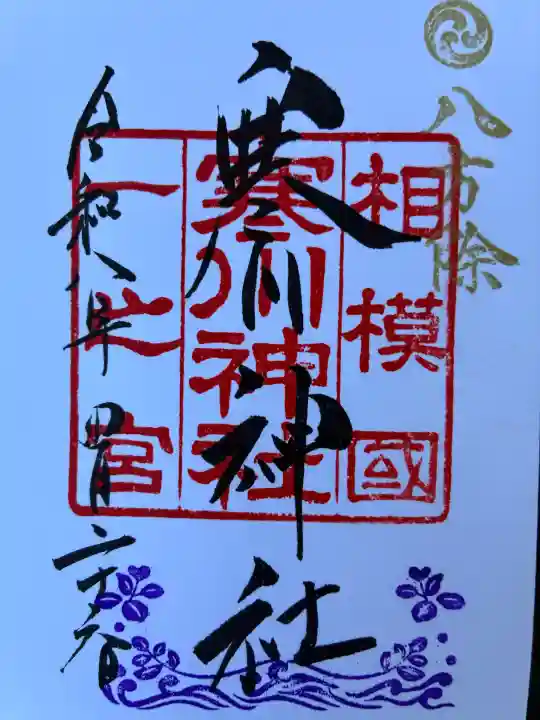 八方除
相模國
寒川神社
一之宮
寒川神社
令和八年四月二十六日